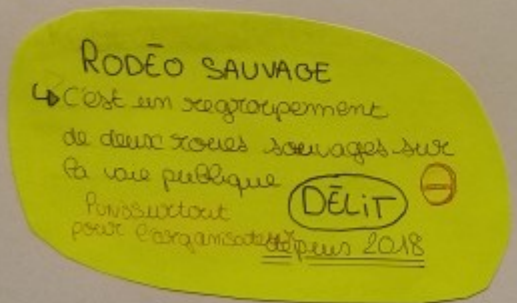 RODÉO SAUVAGE
↳ C'est un regroupement
de deux roues sauvages sur
la voie publique
DÉLIT
Punis surtout
pour l'organisateur depuis 2018